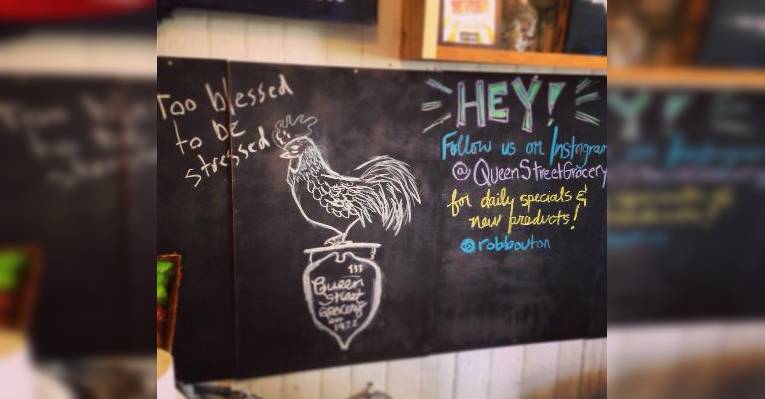 Too blessed
to be
stressed
HEY!
Follow us on Instagram
@QueenStreetGrocery
for daily specials &
new products!
@robbouton
133
Queen
Street
Grocery
1922